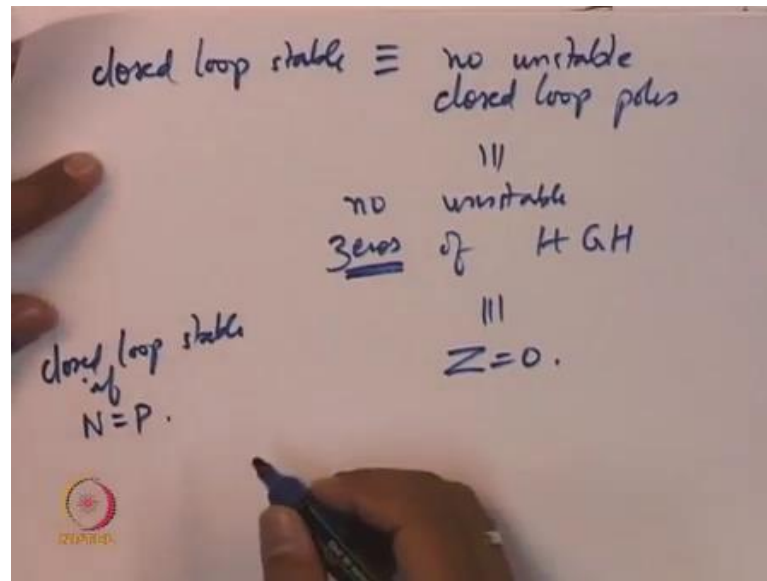 closed loop stable ≡ no unstable
closed loop poles
|||
no unstable
zeros of H GH
|||
Z=0.
closed loop stable
iff
N=P.
NPTEL